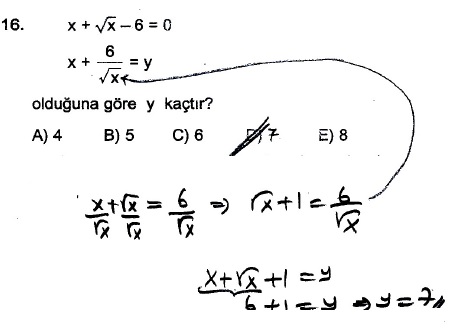 16. x + √x − 6 = 0
x + 6/√x = y
olduğuna göre y kaçtır?
A) 4 B) 5 C) 6 D) 7 E) 8
x/√x + √x/√x = 6/√x ⇒ √x + 1 = 6/√x
x + √x + 1 = y
6 + 1 = y ⇒ y = 7//